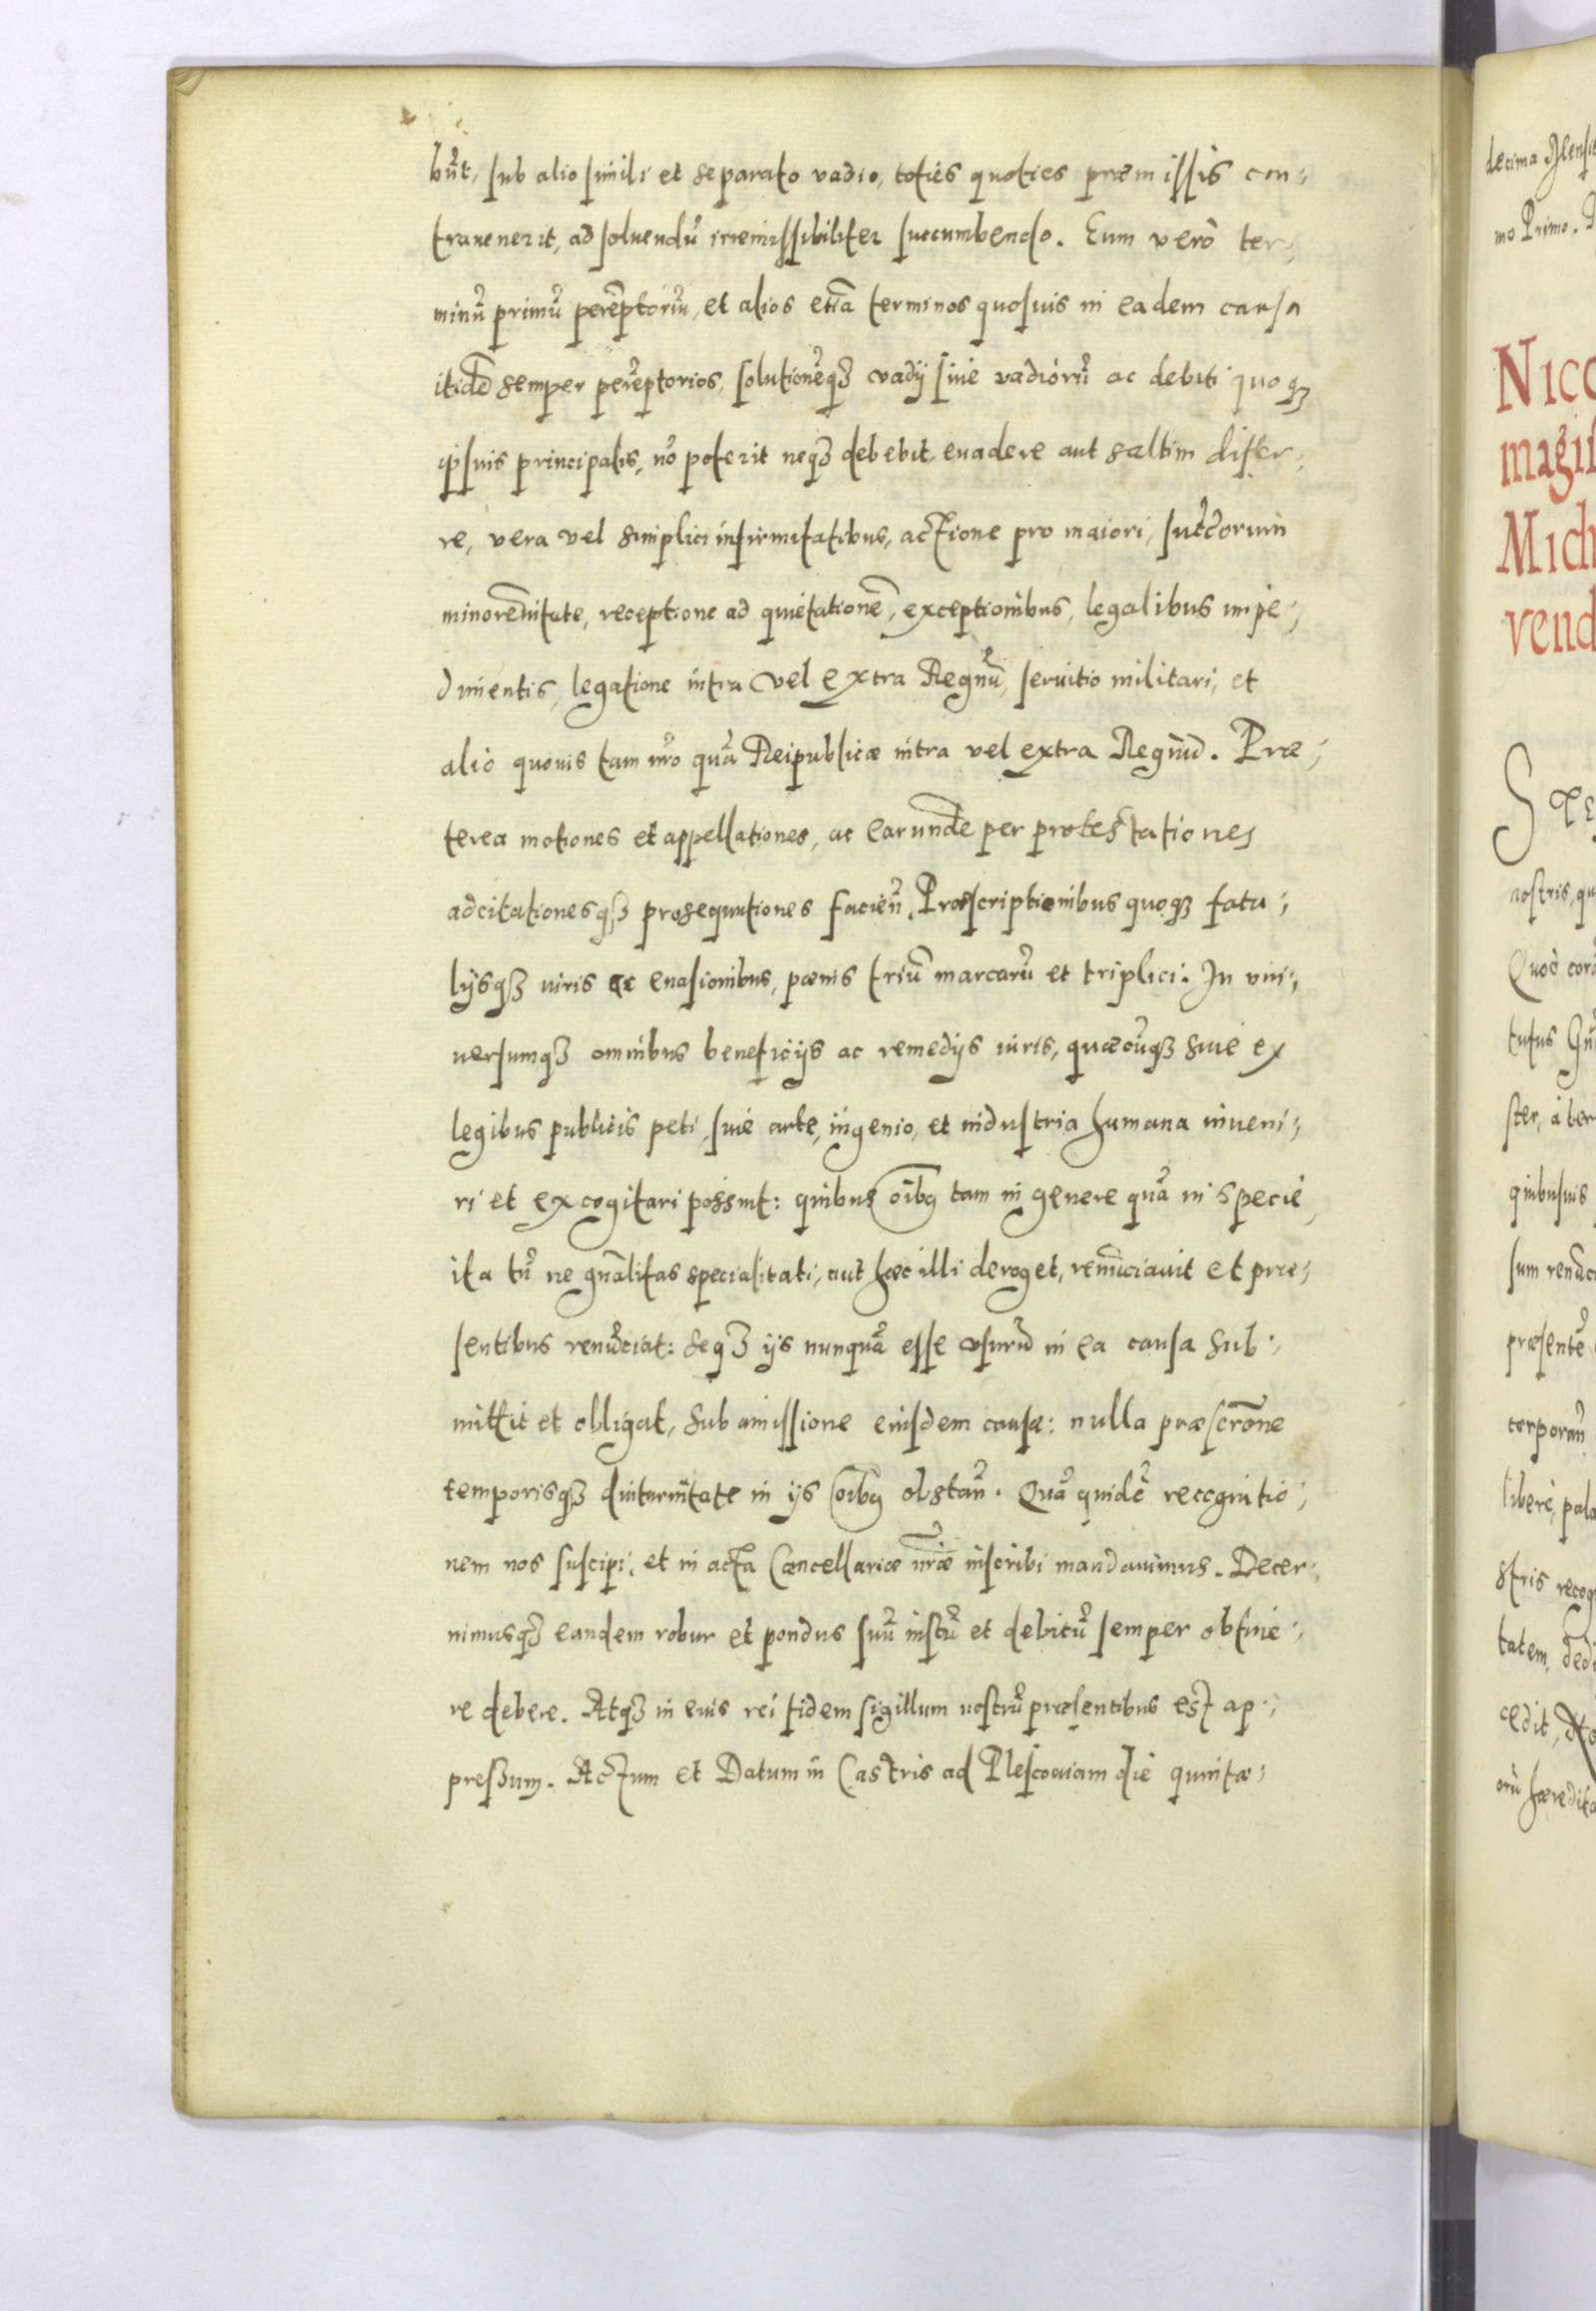 bũt, sub alio simili et separato vadio, toties quoties præmissis con⸗
travenerit, ad soluendũ irremissibiliter succumbendo. Eum verò ter⸗
minũ primũ perẽptoriũ, et alios etiã terminos quosuis in eadem causa
itidẽ semper perẽptorios, solutionẽq3 vadij siue vadiorũ ac debiti quoq3
ipsius principalis, nõ poterit neq3 debebit euadere aut saltim differ⸗
re, vera vel simplici infirmitatibus, actione pro maiori, succ̃orum
minorẽnitate, receptione ad quietationẽ, exceptionibus, legalibus impe⸗
dimentis, legatione intra vel extra Regnũ, seruitio militari, et
alio quouis tam nr̃o quã Reipublicæ intra vel extra Regnũ. Præ⸗
terea motiones et appellationes, ac earundẽ per protestationes
adcitationesq3 prosequutiones facieñ. Præscriptionibus quoq3 fata⸗
lijsq3 iuris ac euasionibus, pænis triũ marcarũ et triplici. In vni⸗
uersumq3 omnibus beneficijs ac remedijs iuris, quæcũq3 siue ex
legibus publicis peti, siue arte, ingenio, et industria humana inueni⸗
ri et excogitari possint: quibus oĩbg tam in genere quã in specie,
ita tñ ne gñalitas specialitati, aut hæc illi deroget, renũciauit et præ⸗
sentibus renũciat: seq3 ijs nunquã esse vsurũ in ea causa sub⸗
mittit et obligat, sub amissione eiusdem causæ: nulla præscrõne
temporisq3 diuturnitate in ijs oĩbg obstañ. Quã quidẽ recognitio⸗
nem nos suscipi, et in acta Cancellariæ nr̃æ inscribi mandauimus. Decer⸗
nimusq3 eandem robur et pondus suũ iustũ et debitũ semper obtine⸗
re debere. Atq3 in eius rei fidem sigillum nostrũ præsentibus est ap⸗
pressum. Actum et Datum in Castris ad Plescouiam die quinta⸗
decima
mo Primo.
NICO
magis
Mich
vend
nostris, qu
Quod
tutus
ster,
quibusuis
sum
præsentẽ
corporañ
liberè, pala
stris recog
tatem, dedi
cedit,